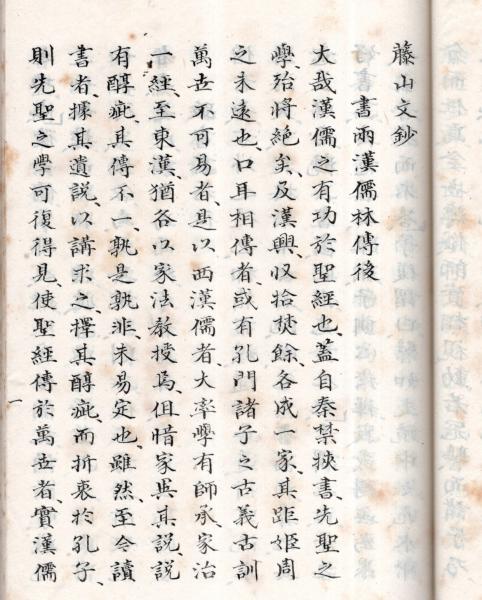 藤山文鈔
書兩漢儒林傳後
大哉漢儒之有功於聖經也、蓋自秦禁挾書、先聖之
學、殆將絕矣、及漢興、収拾焚餘、各成一家、其距姬周
之未遠也、口耳相傳者、或有孔門諸子之古義古訓
萬世不可易者、是以西漢儒者、大率學有師承、家治
一經、至東漢、猶各以家法教授焉、但惜家異其說、說
有醇疵、其傳不一、孰是孰非、未易定也、雖然、至今讀
書者、據其遺說、以講求之、擇其醇疵、而折衷於孔子、
則先聖之學可復得見、使聖經傳於萬世者、實漢儒
一